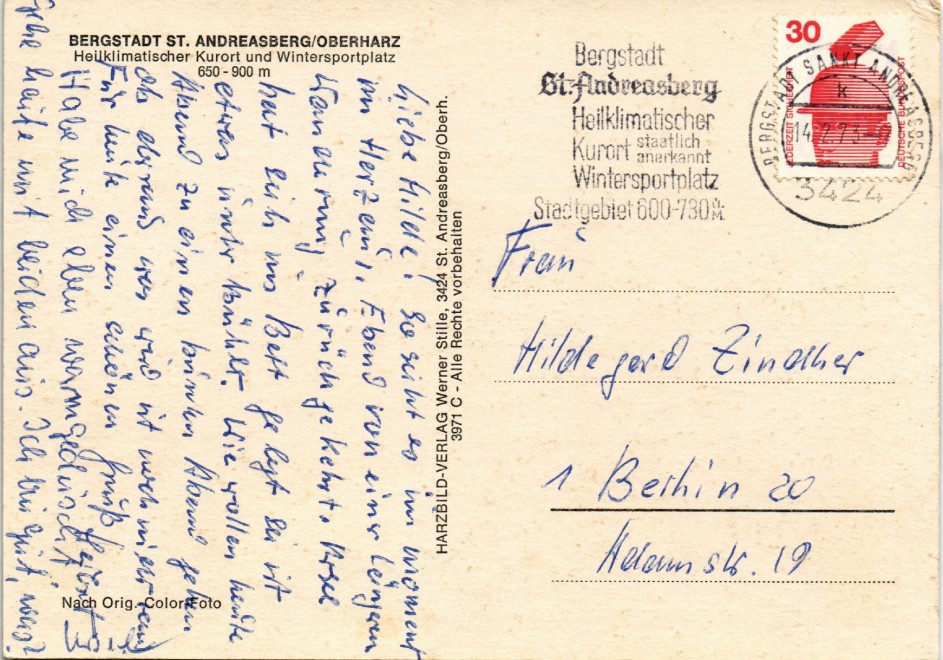 BERGSTADT ST. ANDREASBERG/OBERHARZ
Heilklimatischer Kurort und Wintersportplatz
650 - 900 m
Liebe Hilde! So sieht es im Moment
im Harz aus. Eben von einer längeren
Wanderung zurückgekehrt.
hat sich ins Bett gelegt sie ist
etwas unterkühlt. Wir wollen heute
Abend zu einem bunten Abend gehen
ob daraus was wird ist noch
Für heute einen schönen Gruß
Habe mich eben warmgeduscht!
heute mit beiden aus. Ich bin gut,
Nach Orig.-Color-Foto
HARZBILD-VERLAG Werner Stille, 3424 St. Andreasberg/Oberh.
3971 C - Alle Rechte vorbehalten
Bergstadt
St. Andreasberg
Heilklimatischer
Kurort staatlich anerkannt
Wintersportplatz
Stadtgebiet 600-730
30
JEDERZEIT SICHERHEIT
DEUTSCHE BUNDESPOST
BERGSTADT SANKT ANDREASBERG
k
14.2.75
3424
Frau
Hildegard Zindler
1 Berlin 20
Adamstr. 19